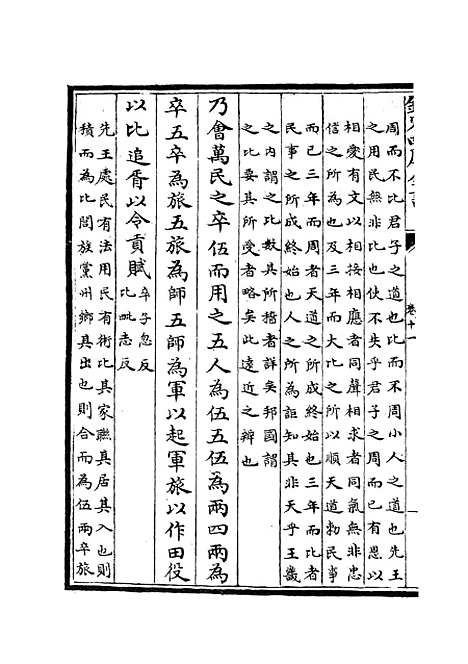 欽定四庫全書
卷十一
周而不比君子之道也比而不周小人之道也先王
之用民無非比也使不失乎君子之周而已有恩以
相愛有文以相接相應者同聲相求者同氣無非忠
信之所為也及三年而大比之所以順天道勑民事
而已三年而周者天道之所成終始也三年而比者
民事之所成終始也人之所為詎知其非天乎王畿
之内謂之比數其所稽者詳矣邦國謂
之比要其所受者略矣此遠近之辨也
乃會萬民之卒伍而用之五人為伍五伍為兩四兩為
卒五卒為旅五旅為師五師為軍以起軍旅以作田役
以比追胥以令貢賦
卒子忽反
比毗志反
先王處民有法用民有術比其家聯其居其入也則
積而為比閭族黨州鄉其出也則合而為伍兩卒旅